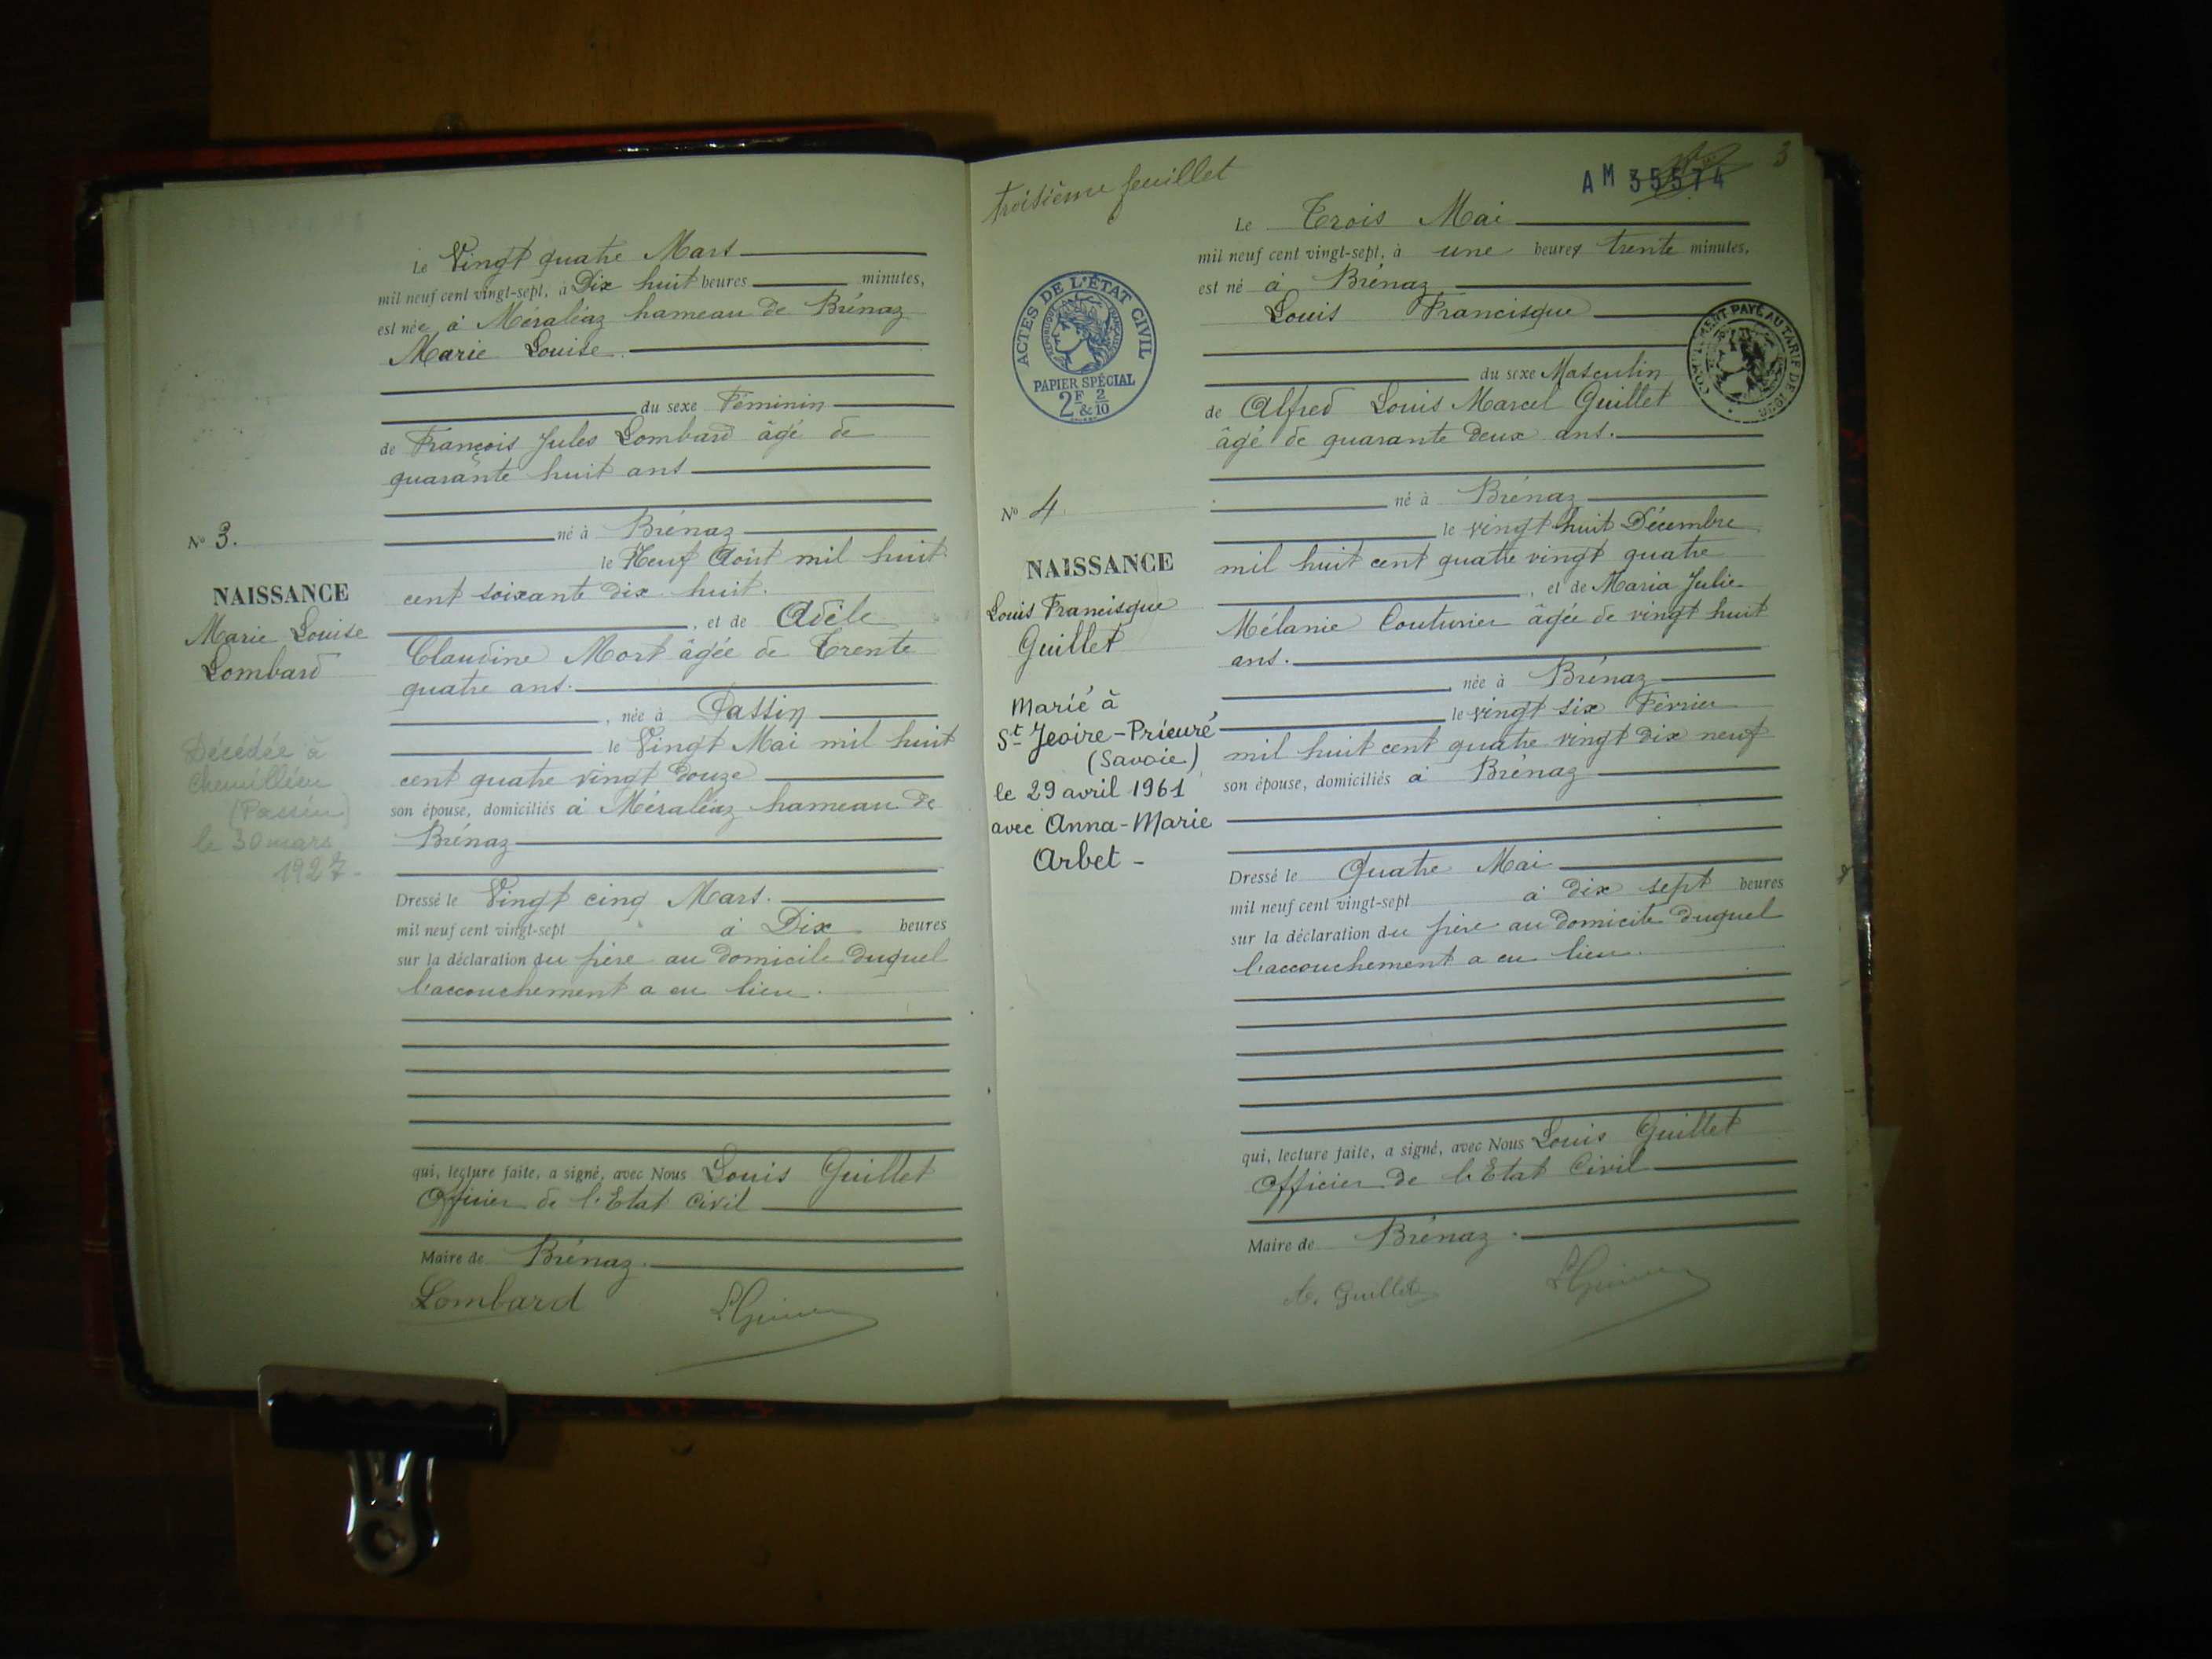 Le Vingt quatre Mars
mil neuf cent vingt-sept, à Dix huit heures minutes,
est née à Méraléaz hameau de Brénaz
Marie Louise
du sexe Féminin
de François Jules Lombard âgé de
quarante huit ans
né à Brénaz
le Neuf Août mil huit
cent soixante dix huit.
, et de Adèle
Claudine Mort âgée de Trente
quatre ans.
, née à Passin
le Vingt Mai mil huit
cent quatre vingt douze
son épouse, domiciliés à Méraléaz hameau de
Brénaz
Dressé le Vingt cinq Mars.
mil neuf cent vingt-sept à Dix heures
sur la déclaration du père au domicile duquel
l'accouchement a eu lieu.
qui, lecture faite, a signé, avec Nous Louis Guillet
Officier de l'Etat Civil
Maire de Brénaz.
Lombard
No 3.
NAISSANCE
Marie Louise
Lombard
Décédée à
(Passin)
le 30 mars
1927-
troisième feuillet
AM 35574
3
ACTES DE L'ÉTAT CIVIL
PAPIER SPÉCIAL
2F & 2/10
No 4
NAISSANCE
Louis Francisque
Guillet
Marié à
St Jeoire-Prieuré
(Savoie)
le 29 avril 1961
avec Anna-Marie
Arbet -
Le Trois Mai
mil neuf cent vingt-sept, à une heures trente minutes,
est né à Brénaz
Louis Francisque
du sexe Masculin
de Alfred Louis Marcel Guillet
âgé de quarante deux ans.
né à Brénaz
le vingt huit Décembre
mil huit cent quatre vingt quatre
, et de Maria Julie
Mélanie Couturier âgée de vingt huit
ans.
, née à Brénaz
le vingt six Février
mil huit cent quatre vingt dix neuf
son épouse, domiciliés à Brénaz
Dressé le Quatre Mai
mil neuf cent vingt-sept à dix sept heures
sur la déclaration du père au domicile duquel
l'accouchement a eu lieu.
qui, lecture faite, a signé, avec Nous Louis Guillet
Officier de l'Etat Civil
Maire de Brénaz.
A. Guillet